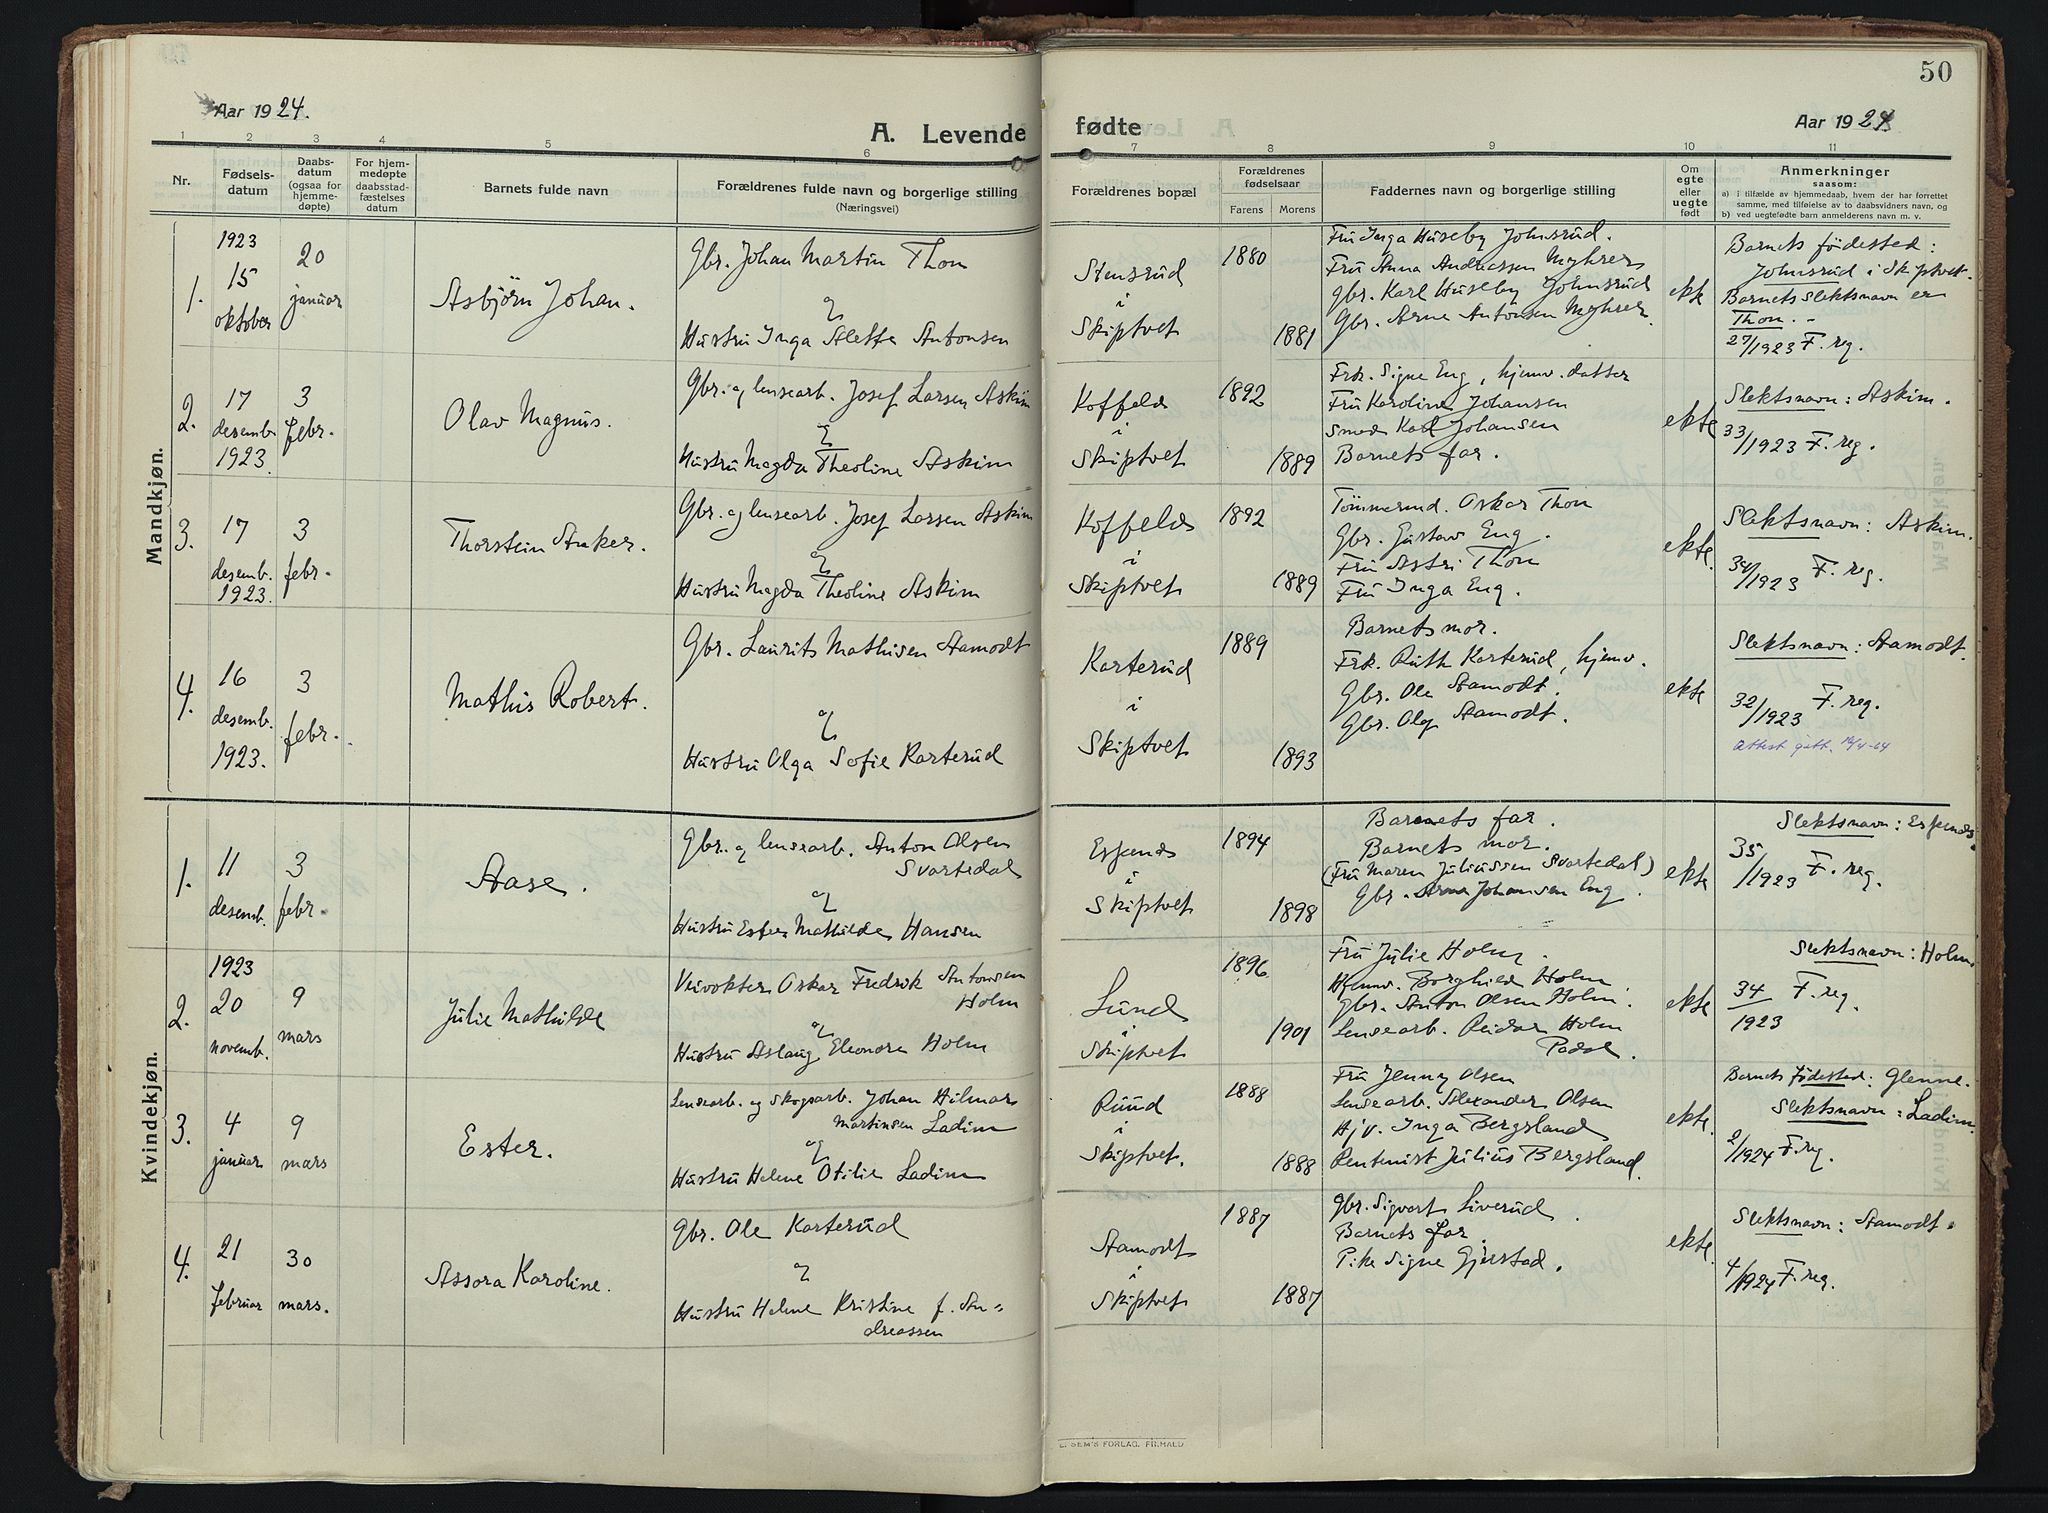 50
Aar 1924.
A. Levende
fødte
Aar 1924
1 2 3 4 5 6 7 8 9 10 11
Nr.
Fødsels-
datum
Daabs-
datum
(ogsaa for
hjemme-
døpte)
For hjem-
medøpte
daabsstad-
fæstelses
datum
Barnets fulde navn
Forældrenes fulde navn og borgerlige stilling
(Næringsvei)
Forældrenes bopæl
Forældrenes
fødselsaar
Farens
Morens
Faddernes navn og borgerlige stilling
Om
egte
eller
uegte
født
Anmerkninger
saasom:
a) i tilfælde av hjemmedaab, hvem der har forrettet
samme, med tilføielse av to daabsvidners navn, og
b) ved uegtefødte barn anmelderens navn m. v.
Mandkjøn.
1.
1923
15
oktober
20
januar
Asbjörn Johan.
Gbr. Johan Martin Thon
og
Hustru Inga Alette Antonsen
Stensrud
i
Skiptvet
1880
1881
Fru Inga Huseby Johnsrud.
Fru Anna Andreassen Myhrer
Gbr. Karl Huseby Johnsrud
Gbr. Arne Antonsen Myhrer.
ekte
Barnets födested:
Johnsrud i Skiptvet.
Barnets slektsnavn er
Thon. -
27/1923 F. reg.
2.
17
desemb.
1923.
3
febr.
Olav Magnus.
Gbr. og lensearb. Josef Larsen Askim
og
Hustru Magda Theoline Askim
Koffeld
i
Skiptvet
1892
1889
Frk. Signe Eng, hjemv. datter
Fru Karoline Johansen
Smed Karl Johansen
Barnets far.
ekte
Slektsnavn: Askim.
33/1923 F. reg.
3.
17
desemb.
1923.
3
febr.
Thorstein Anker.
Gbr. og lensearb. Josef Larsen Askim
og
Hustru Magda Theoline Askim
Koffeld
i
Skiptvet
1892
1889
Tömmermd. Oskar Thon
Gbr. Gustav Eng.
Fru Astri Thon
Fru Inga Eng.
ekte.
Slektsnavn: Askim.
34/1923 F. reg.
4.
16
desemb.
1923.
3
febr.
Mathis Robert.
Gbr. Laurits Mathisen Aamodt
og
Hustru Olga Sofie Karterud
Karterud
i
Skiptvet
1889
1893
Barnets mor.
Frk. Ruth Karterud, hjemv.
Gbr. Ole Aamodt.
Gbr. Olaf Aamodt.
ekte
Slektsnavn: Aamodt.
32/1923 F. reg.
Attest gitt.
Kvindekjøn.
1.
11
desemb.
3
febr.
Aase.
Gbr. og lensearb. Anton Olsen
Svartedal
og
Hustru Ester Mathilde Hansen
Espenes
i
Skiptvet
1894
1898
Barnets far.
Barnets mor.
(Fru Maren Juliussen Svartedal)
Gbr. Arne Johansen Eng.
ekte
Slektsnavn: Espenes.
35/1923 F. reg.
2.
1923
20
novemb.
9
mars
Julie Mathilde
Veivokter Oskar Fredrik Antonsen
Holm
og
Hustru Aslaug Eleonora Holm
Lund
i
Skiptvet
1896.
1901
Fru Julie Holm.
Hjemv. Borghild Holm
Gbr. Anton Olsen Holm.
Lensearb. Reidar Holm
ekte
Slektsnavn: Holm.
34/1923 F. reg.
3.
4
januar
9
mars
Ester.
Lensearb. og skogsarb. Johan Hilmar
Martinsen Ladim
og
Hustru Helene Otilie Ladim
Ruud
i
Skiptvet.
1888
1888
Fru Jenny Olsen
Lensearb. Alexander Olsen
Hjv. Inga Bergsland
Rentenist Julius Bergsland.
ekte.
Barnets födested: Glenne.
Slektsnavn: Ladim.
2/1924 F. reg.
4.
21
februar
30
mars.
Assora Karoline.
Gbr. Ole Karterud
og
Hustru Helene Kristine f. An-
dreassen
Aamodt
i
Skiptvet
1887
1887
Gbr. Sigvart Liverud.
Barnets far.
Pike Signe Gjerstad.
ekte.
Slektsnavn: Aamodt.
4/1924 F. reg.
E. SEM'S FORLAG. FR.HALD